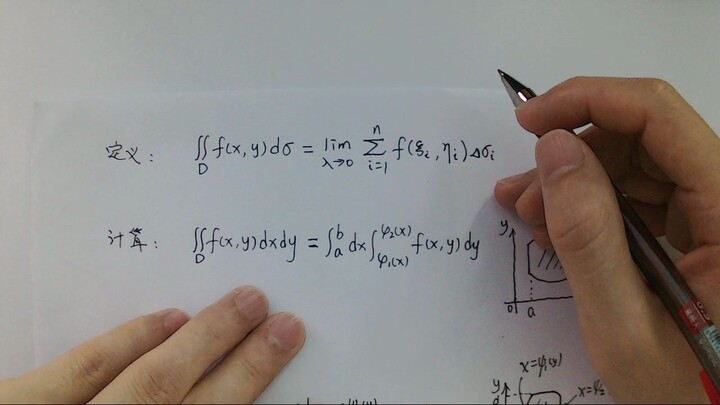 定义： ∬_D f(x,y)dσ = lim_{λ→0} Σ_{i=1}^{n} f(ξ_i, η_i)Δσ_i
计算： ∬_D f(x,y)dxdy = ∫_a^b dx∫_{φ₁(x)}^{φ₂(x)} f(x,y)dy
y
0 a
x=ψ₁(y)
y
d